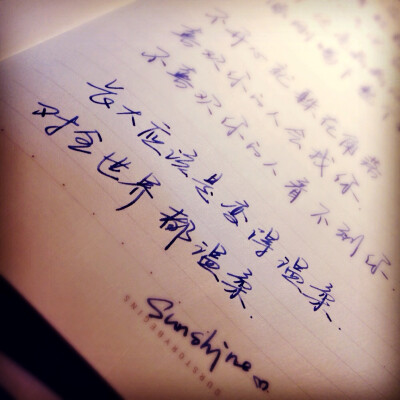 不开心就躲在角落
喜欢你的人会找你.
不喜欢你的人看不到你
长大应该是变得温柔.
对全世界都温柔.
Sunshine